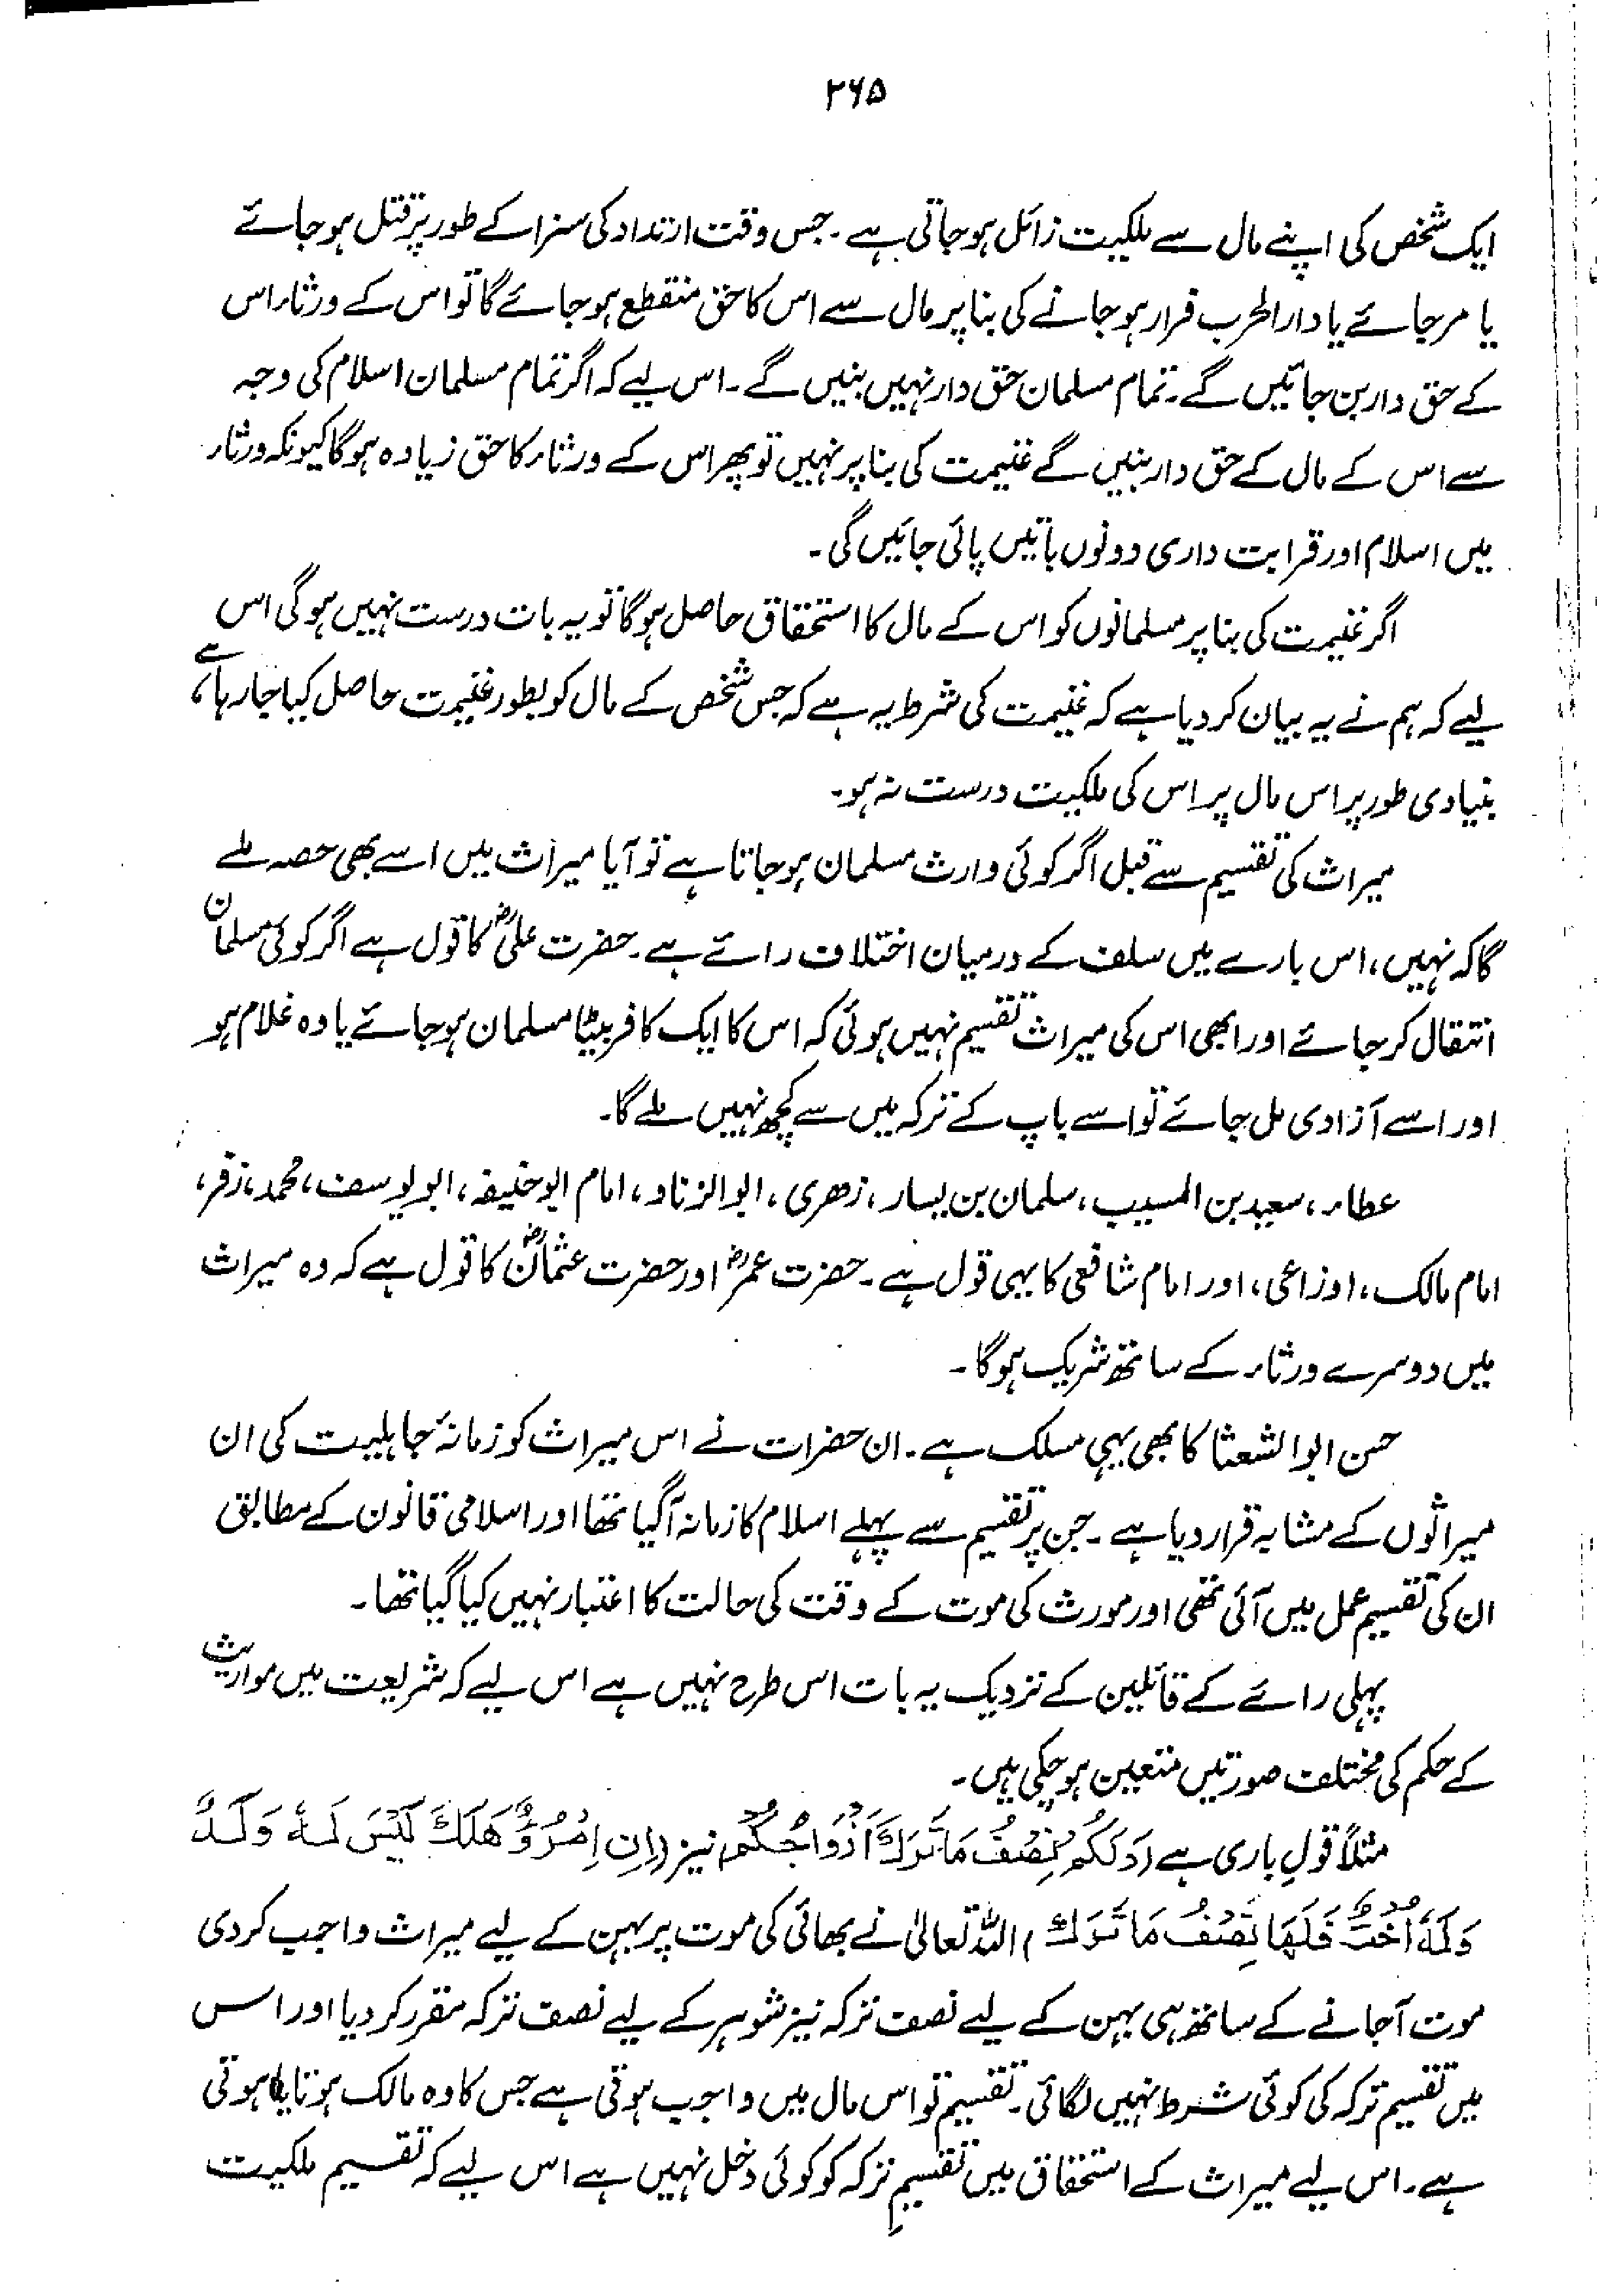 ۲۶۵
ایک شخص کی اپنے مال سے ملکیت زائل ہو جاتی ہے۔ جس وقت ارتداد کی سزا کے طور پر قتل ہو جائے
یا مر جائے یا دارالحرب فرار ہو جانے کی بنا پر مال سے اس کا حق منقطع ہو جائے گا تو اس کے ورثاء اس
کے حق دار بن جائیں گے۔ تمام مسلمان حق دار نہیں بنیں گے۔ اس لیے کہ اگر تمام مسلمان اسلام کی وجہ
سے اس کے مال کے حق دار بنیں گے غنیمت کی بنا پر نہیں تو پھر اس کے ورثاء کا حق زیادہ ہو گا کیونکہ ورثاء
میں اسلام اور قرابت داری دونوں باتیں پائی جائیں گی۔
اگر غنیمت کی بنا پر مسلمانوں کو اس کے مال کا استحقاق حاصل ہو گا تو یہ بات درست نہیں ہو گی اس
لیے کہ ہم نے یہ بیان کر دیا ہے کہ غنیمت کی شرط یہ ہے کہ جس شخص کے مال کو بطور غنیمت حاصل کیا جا رہا ہے،
بنیادی طور پر اس مال پر اس کی ملکیت درست نہ ہو۔
میراث کی تقسیم سے قبل اگر کوئی وارث مسلمان ہو جاتا ہے تو آیا میراث میں اسے بھی حصہ ملے
گا کہ نہیں، اس بارے میں سلف کے درمیان اختلاف رائے ہے۔ حضرت علیؓ کا قول ہے اگر کوئی مسلمان
انتقال کر جائے اور ابھی اس کی میراث تقسیم نہیں ہوئی کہ اس کا ایک کافر بیٹا مسلمان ہو جائے یا وہ غلام ہو
اور اسے آزادی مل جائے تو اسے باپ کے ترکہ میں سے کچھ نہیں ملے گا۔
عطاء، سعید بن المسیب، سلمان بن یسار، زھری، ابو الزناد، امام ابو حنیفہ، ابو یوسف، محمد، زفر،
امام مالک، اوزاعی، اور امام شافعی کا یہی قول ہے۔ حضرت عمرؓ اور حضرت عثمانؓ کا قول ہے کہ وہ میراث
میں دوسرے ورثاء کے ساتھ شریک ہو گا۔
حسن ابو الشعثا کا بھی یہی مسلک ہے۔ ان حضرات نے اس میراث کو زمانۂ جاہلیت کی ان
میراثوں کے مشابہ قرار دیا ہے۔ جن پر تقسیم سے پہلے اسلام کا زمانہ آ گیا تھا اور اسلامی قانون کے مطابق
ان کی تقسیم عمل میں آئی تھی اور مورث کی موت کے وقت کی حالت کا اعتبار نہیں کیا گیا تھا۔
پہلی رائے کے قائلین کے نزدیک یہ بات اس طرح نہیں ہے اس لیے کہ شریعت میں مواریث
کے حکم کی مختلف صورتیں متعین ہو چکی ہیں۔
مثلاً قولِ باری ہے (وَلَكُمْ نِصْفُ مَا تَرَكَ أَزْوَاجُكُمْ) نیز (اِنِ امْرُؤٌ هَلَكَ لَيْسَ لَهُ وَلَدٌ
وَلَهُ أُخْتٌ فَلَهَا نِصْفُ مَا تَرَكَ) اللہ تعالیٰ نے بھائی کی موت پر بہن کے لیے میراث واجب کر دی
موت آ جانے کے ساتھ ہی بہن کے لیے نصف ترکہ نیز شوہر کے لیے نصف ترکہ مقرر کر دیا اور اس
میں تقسیم ترکہ کی کوئی شرط نہیں لگائی۔ تقسیم تو اس مال میں واجب ہوتی ہے جس کا وہ مالک ہوتا یا ہوتی
ہے۔ اس لیے میراث کے استحقاق میں تقسیمِ ترکہ کو کوئی دخل نہیں ہے اس لیے کہ تقسیم ملکیت